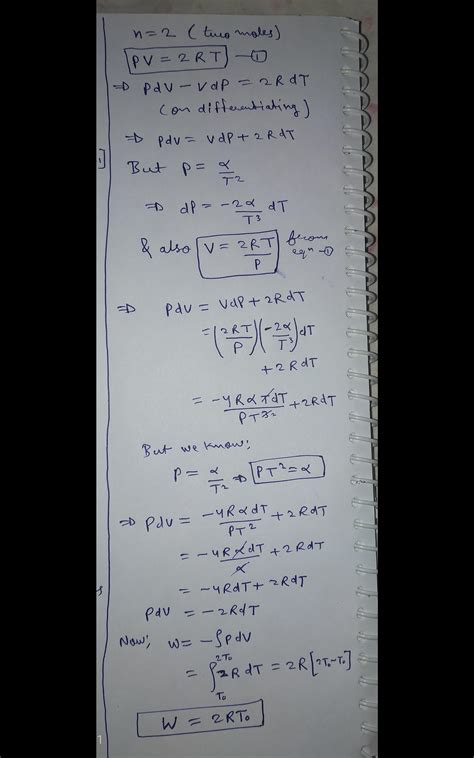 n=2 (two moles)
PV = 2RT —①
⇒ PdV - VdP = 2RdT
(on differentiating)
⇒ PdV = VdP + 2RdT
But P = α/T²
⇒ dP = -2α/T³ dT
& also V = 2RT/P from eqⁿ -①
⇒ PdV = VdP + 2RdT
= (2RT/P)(-2α/T³)dT
+ 2RdT
= -4RαTdT/PT³² + 2RdT
But we know;
P = α/T² ⇒ PT² = α
⇒ PdV = -4RαdT/PT² + 2RdT
= -4RαdT/α + 2RdT
= -4RdT + 2RdT
PdV = -2RdT
Now; W = -∫PdV
= ∫T₀^2T₀ 2RdT = 2R[2T₀-T₀]
W = 2RT₀